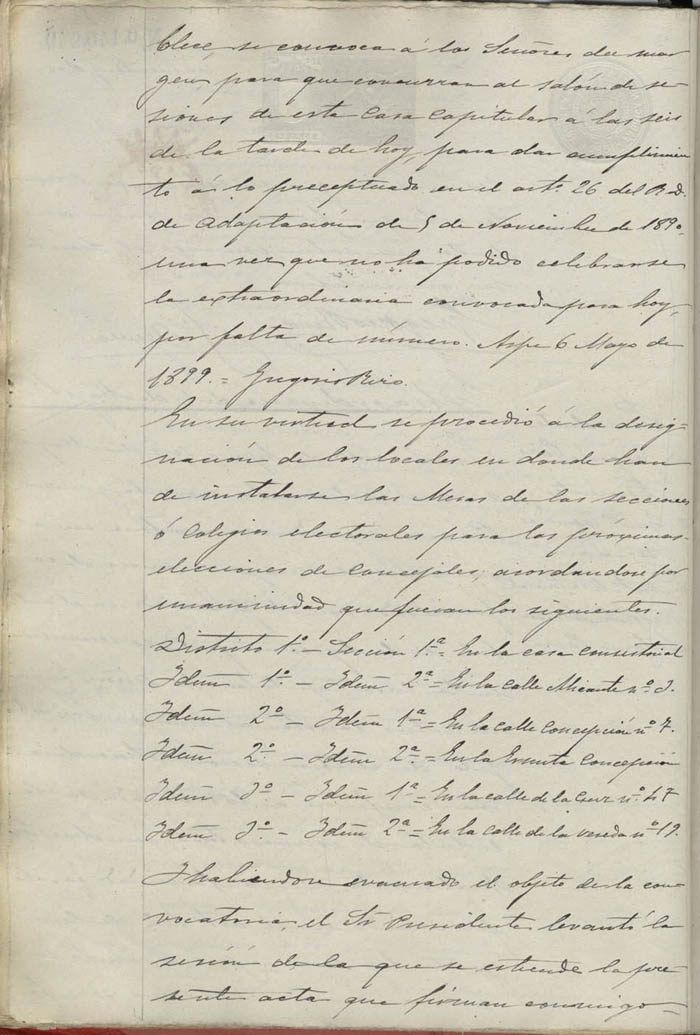 blece, se convoca á los Señores del mar
gen, para que concurran al salón de se
siones de esta Casa Capitular á las seis
de la tarde de hoy, para dar cumplimien
to á lo preceptuado en el artº 26 del R.D.
de Adaptación de 5 de Noviembre de 1890,
una vez que no há podido celebrarse
la extraordinaria convocada para hoy,
por falta de número. Aspe 6 Mayo de
1899. = Gregorio
En su virtud se procedió á la desig-
nación de los locales en donde han
de instalarse las Mesas de las secciones
ó Colegios electorales para las próximas
elecciones de Concejales, acordandose por
unanimidad que fueran los siguientes.
Distrito 1º - Sección 1ª = En la casa consistorial
Idem 1º - Idem 2ª = En la calle Alicante nº 3.
Idem 2º - Idem 1ª = En la calle Concepción nº 7.
Idem 2º - Idem 2ª = En la Ermita Concepción
Idem 3º - Idem 1ª = En la calle de la Cruz nº 47
Idem 3º - Idem 2ª = En la calle de la vereda nº 19.
Y habiendose evacuado el objeto de la con-
vocatoria, el Sr Presidente levantó la
sesión de la que se estiende la pre
sente acta que firman conmigo